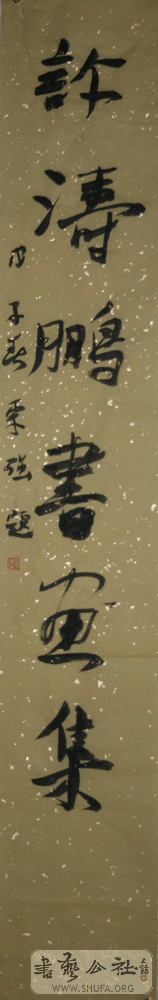 許濤鵬書画集
戊子春栗强題
書藝公社
WWW.SHUFA.ORG